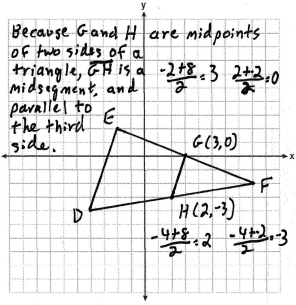 y
Because G and H are midpoints
of two sides of a
triangle, GH is a
midsegment, and
parallel to
the third
side.
-2+8/2=3 2+-2/2=0
E
G(3,0)
x
F
D
H(2,-3)
-4+8/2=2 -4+-2/2=-3